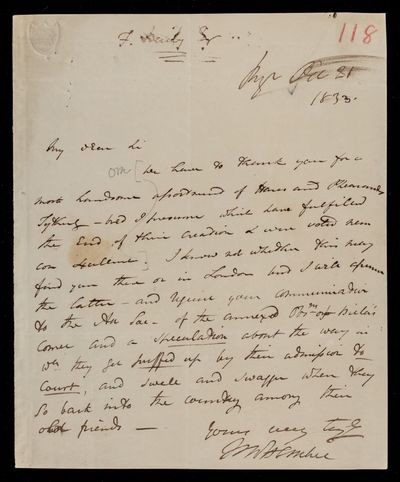 F. Baily Esq
118
Oct 31
1833.
My dear Sir
om [We have to thank you for a
most handsome assortment of Hares and Pheasants
- and I presume which have fulfilled
the End of their Creation & were voted nem
con Excellent] I know not whether this may
find you there or in London but I will assume
the latter - and request your communication
to the As Soc. of the annexed Obsns of Biela's
Comet and a speculation about the way in
wh they get puffed up by their admission to
Court, and swell and swagger when they
go back into the country among their
old friends —
Yours very truly
JFW Herschel